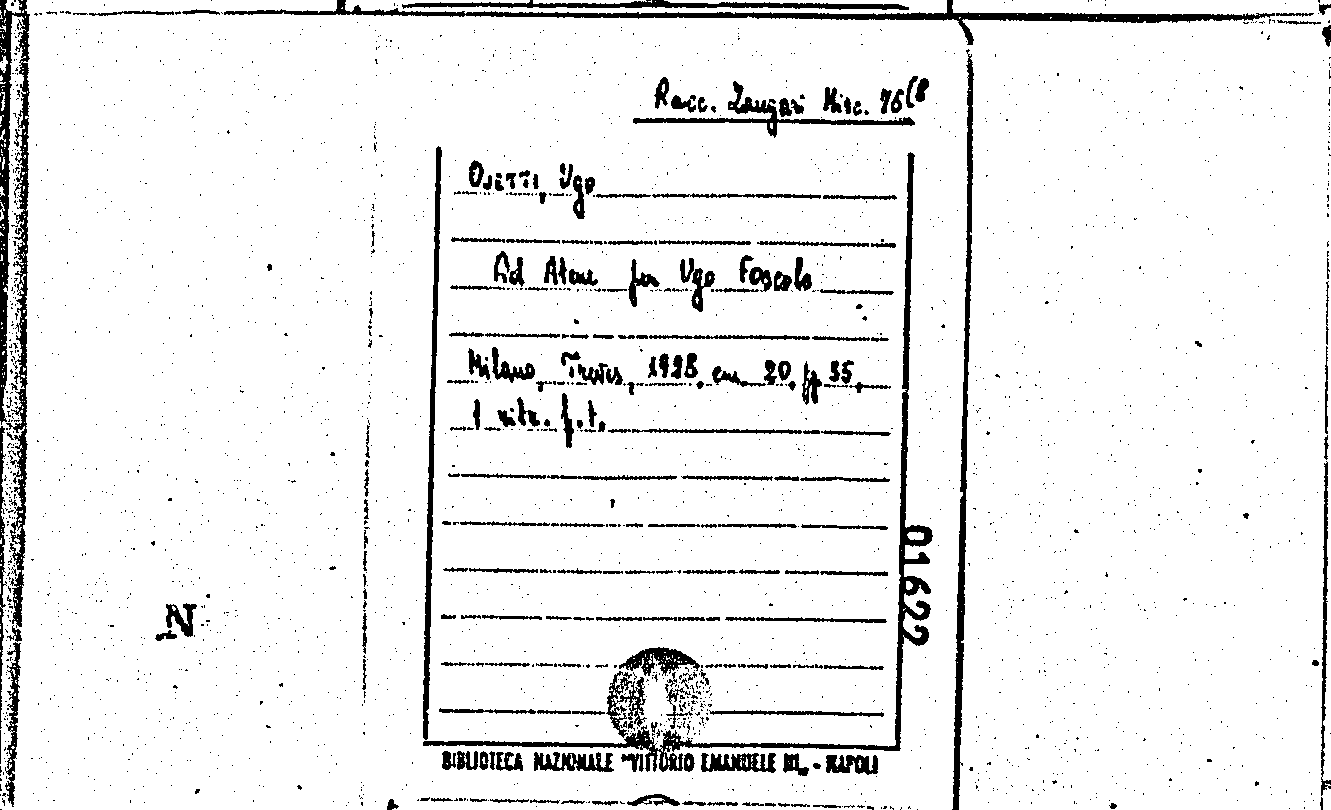 Racc. Zangari Misc. 76(8
OJETTI, Ugo
Ad Atene per Ugo Foscolo
Milano, Treves, 1928, cm. 20, pp 35,
1 ritr. f.t.
01622
N
BIBLIOTECA NAZIONALE "VITTORIO EMANUELE III„ - NAPOLI